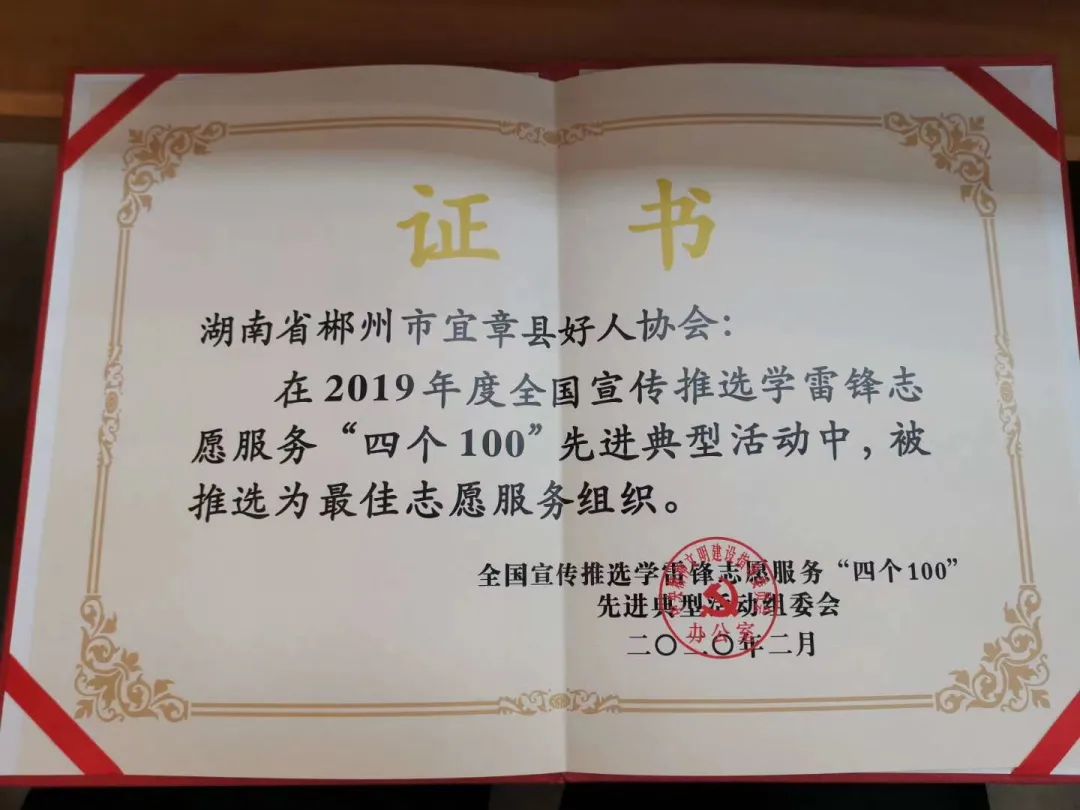 证 书
湖南省郴州市宜章县好人协会：
在2019年度全国宣传推选学雷锋志
愿服务“四个100”先进典型活动中，被
推选为最佳志愿服务组织。
全国宣传推选学雷锋志愿服务“四个100”
先进典型活动组委会
二〇二〇年二月
文明建设指
办公室